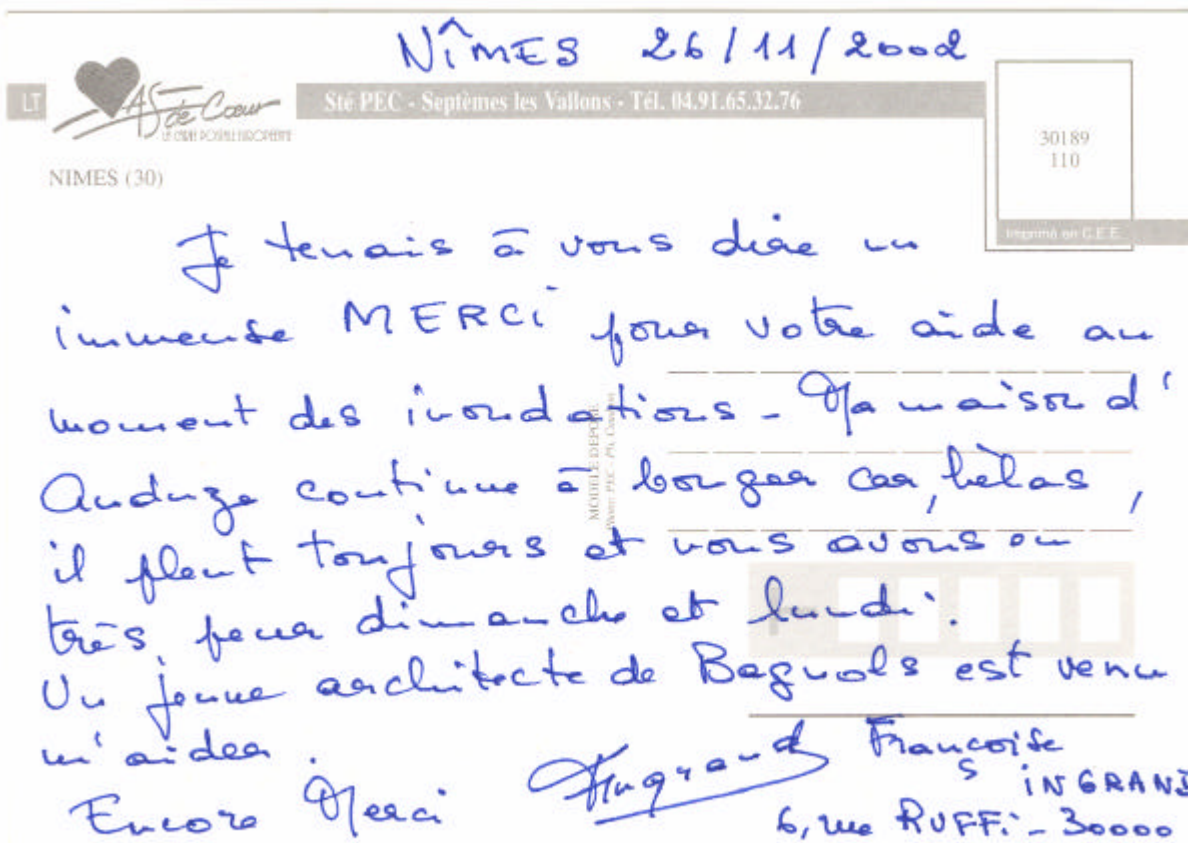 NÎMES 26/11/2002
LT
AS de Cœur
LA CARTE POSTALE EUROPÉENNE
Sté PEC - Septèmes les Vallons - Tél. 04.91.65.32.76
30189
110
NIMES (30)
Imprimé en C.E.E.
Je tenais à vous dire un
immense MERCi pour votre aide au
moment des inondations - Ma maison d'
Anduze continue à bouger car, hèlas,
il pleut toujours et nous avons eu
très peur dimanche et lundi.
Un jeune architecte de Bagnols est venu
m'aider.
Encore Merci
MODELE DEPOSE
Photos PEC - Ph.
Françoise
INGRAND
6, rue RUFFi - 30000